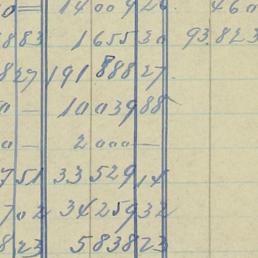 0 = 1400926 460
883 165530 93.823
827 19188827
0 — 1003988
0 — 2000 —
751 3352914
702 3425932
823 583823